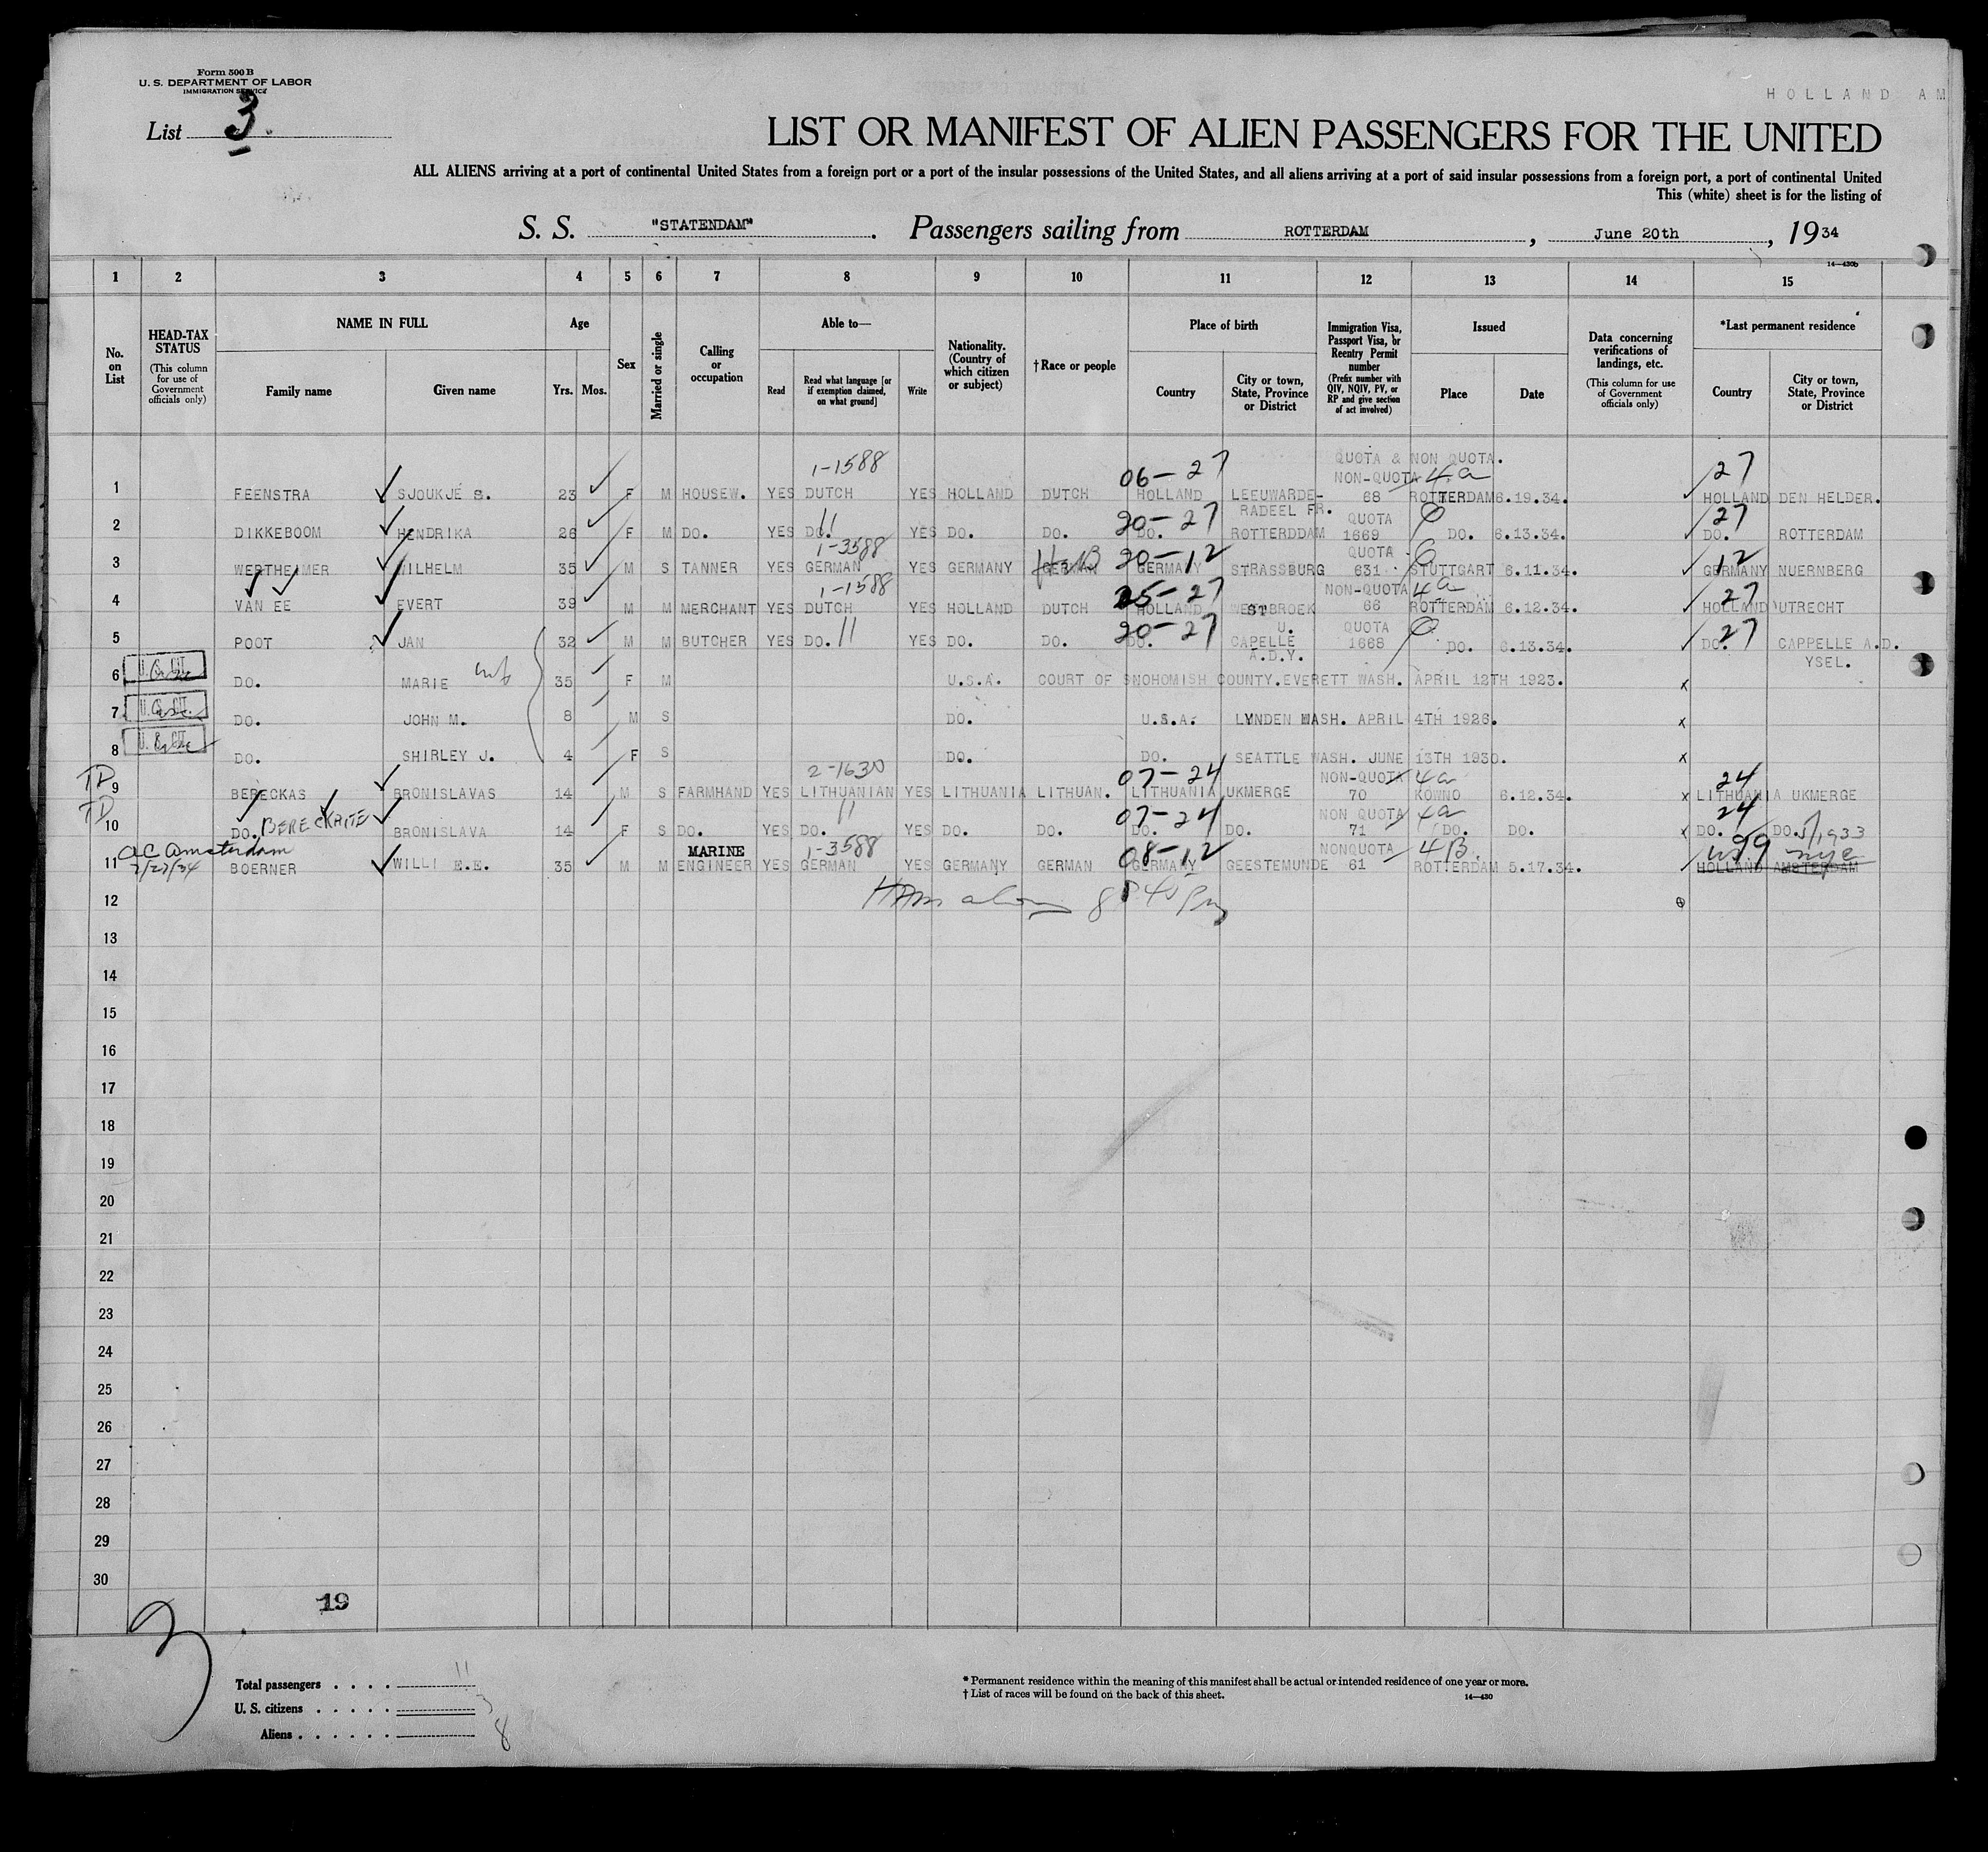 Form 500 B
U. S. DEPARTMENT OF LABOR
IMMIGRATION SERVICE
HOLLAND AM
List 3.
LIST OR MANIFEST OF ALIEN PASSENGERS FOR THE UNITED
ALL ALIENS arriving at a port of continental United States from a foreign port or a port of the insular possessions of the United States, and all aliens arriving at a port of said insular possessions from a foreign port, a port of continental United
This (white) sheet is for the listing of
S. S. "STATENDAM". Passengers sailing from ROTTERDAM, June 20th, 1934
14—430b
1 2 3 4 5 6 7 8 9 10 11 12 13 14 15
No. on List
HEAD-TAX STATUS (This column for use of Government officials only)
NAME IN FULL
Family name Given name
Age
Yrs. Mos.
Sex
Married or single
Calling or occupation
Able to—
Read Read what language [or if exemption claimed, on what ground] Write
Nationality. (Country of which citizen or subject)
† Race or people
Place of birth
Country City or town, State, Province or District
Immigration Visa, Passport Visa, or Reentry Permit number (Prefix number with QIV, NQIV, PV, or RP and give section of act involved)
Issued
Place Date
Data concerning verifications of landings, etc. (This column for use of Government officials only)
*Last permanent residence
Country City or town, State, Province or District
QUOTA & NON QUOTA.
1-1588 06-27 NON-QUOTA 4a 27
1 FEENSTRA SJOUKJE S. 23 F M HOUSEW. YES DUTCH YES HOLLAND DUTCH HOLLAND LEEUWARDE- 68 ROTTERDAM 6.19.34. HOLLAND DEN HELDER.
RADEEL FR.
11 20-27 QUOTA 27
2 DIKKEBOOM HENDRIKA 26 F M DO. YES DO. YES DO. DO. DO. ROTTERDDAM 1669 DO. 6.13.34. DO. ROTTERDAM
1-3588 20-12 QUOTA 12
3 WERTHEIMER WILHELM 35 M S TANNER YES GERMAN YES GERMANY GERMAN GERMANY STRASSBURG 631 STUTTGART 6.11.34. GERMANY NUERNBERG
1-1588 25-27 NON-QUOTA 4a 27
4 VAN EE EVERT 39 M M MERCHANT YES DUTCH YES HOLLAND DUTCH HOLLAND WESTBROEK 66 ROTTERDAM 6.12.34. HOLLAND UTRECHT
11 20-27 U. QUOTA 27
5 POOT JAN 32 M M BUTCHER YES DO. YES DO. DO. DO. CAPELLE 1668 DO. 6.13.34. DO. CAPPELLE A.D.
A.D.Y. YSEL.
6 U.S. CIT. DO. MARIE 35 F M U.S.A. COURT OF SNOHOMISH COUNTY. EVERETT WASH. APRIL 12TH 1923. x
7 U.S. CIT. DO. JOHN M. 8 M S DO. U.S.A. LYNDEN WASH. APRIL 4TH 1926. x
8 U.S. CIT. DO. SHIRLEY J. 4 F S DO. DO. SEATTLE WASH. JUNE 13TH 1930. x
TD 2-1630 07-24 NON-QUOTA 4a 24
9 BERECKAS BRONISLAVAS 14 M S FARMHAND YES LITHUANIAN YES LITHUANIA LITHUAN. LITHUANIA UKMERGE 70 KOWNO 6.12.34. x LITHUANIA UKMERGE
TD 11 07-24 NON QUOTA 4a 24
10 DO. BERECKAITE BRONISLAVA 14 F S DO. YES DO. YES DO. DO. DO. DO. 71 DO. DO. x DO. DO.
AC Amsterdam MARINE 1-3588 08-12 NONQUOTA 4B 99
11 BOERNER WILLI E.E. 35 M M ENGINEER YES GERMAN YES GERMANY GERMAN GERMANY GEESTEMUNDE 61 ROTTERDAM 5.17.34. HOLLAND AMSTERDAM
12
13
14
15
16
17
18
19
20
21
22
23
24
25
26
27
28
29
30
19
3
Total passengers . . . . 11
U. S. citizens . . . . . 3
Aliens . . . . . . 8
* Permanent residence within the meaning of this manifest shall be actual or intended residence of one year or more.
† List of races will be found on the back of this sheet.
14—430